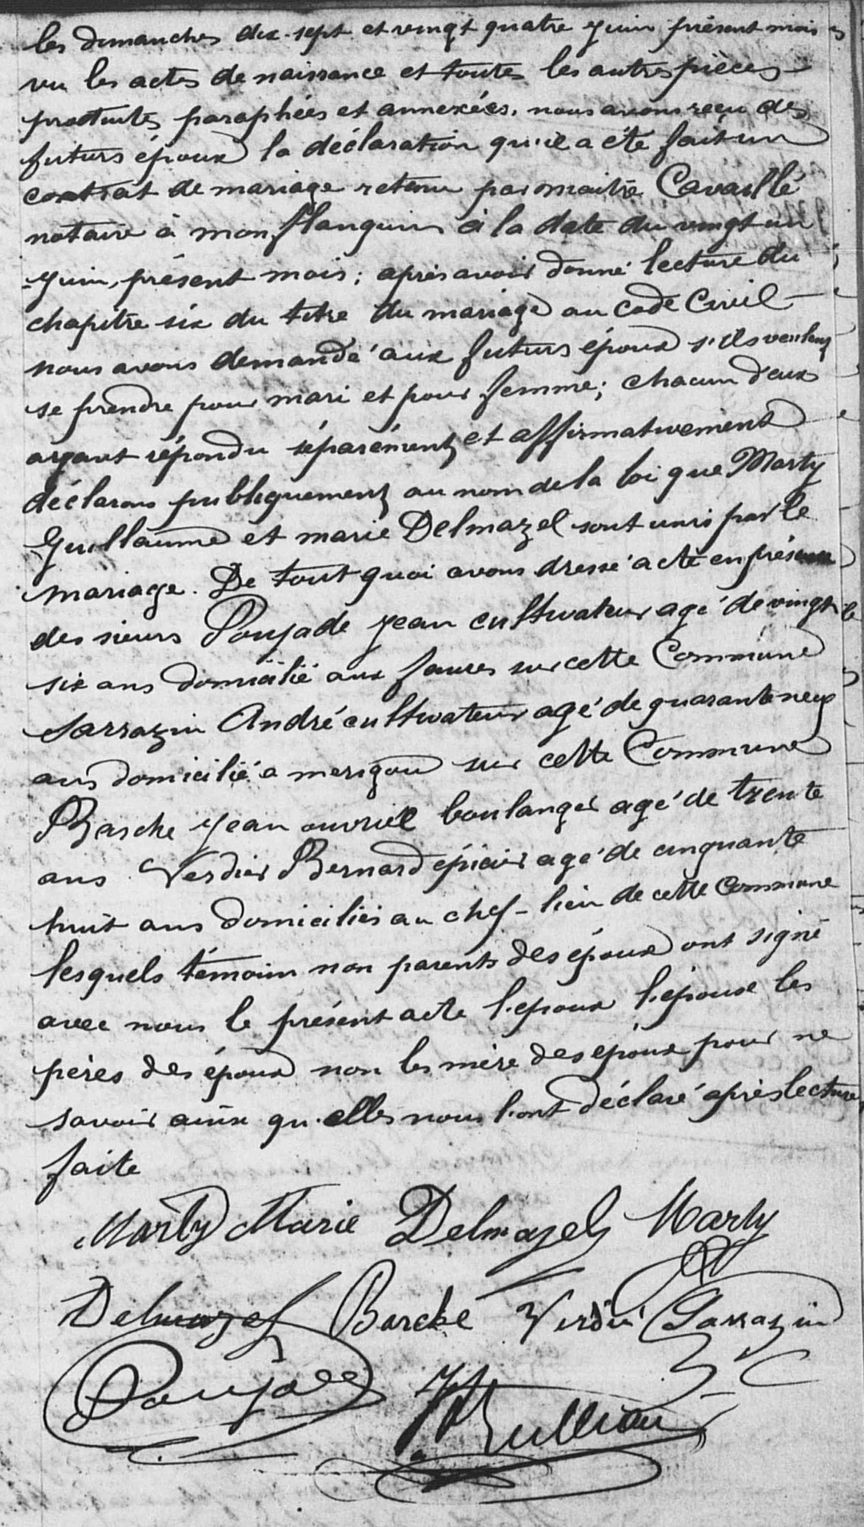 les dimanches dix-sept et vingt quatre juin présent mois
vu les actes de naissance et toutes les autres pièces
produites paraphées et annexées. nous avons reçu des
futurs époux la déclaration qu'il a été fait un
contrat de mariage retenu par maître Cavaillé
notaire à monflanquin à la date du vingt un
juin, présent mois; après avoir donné lecture du
chapitre six du titre du mariage au code Civil
nous avons demandé aux futurs époux s'ils veulent
se prendre pour mari et pour femme; chacun d'eux
ayant répondu séparément et affirmativement
déclarons publiquement au nom de la loi que Marty
Guillaume et marie Delmazel sont unis par le
mariage. De tout quoi avons dressé acte en présence
des sieurs Poujade jean cultivateur agé de vingt
six ans domicilié aux faures sur cette Commune
Sarrazin André cultivateur agé de quarante neuf
ans domicilié a merigou sur cette Commune
Barcke jean ouvrier boulanger agé de trente
ans Verdier Bernard épicier agé de cinquante
huit ans domiciliés au chef-lieu de cette Commune
lesquels témoins non parents des époux ont signé
avec nous le présent acte l'époux l'épouse les
pères des époux non les mère des époux pour ne
savoir ainsi qu'elles nous l'ont déclaré après lecture
faite
Marty Marie Delmazel Marty
Delmazel Barcké Verdier Sarrazin
Poujade